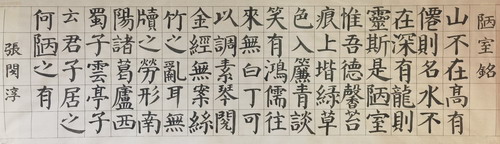 陋室銘
山不在高有
僊則名水不
在深有龍則
靈斯是陋室
惟吾德馨苔
痕上堦綠草
色入簾青談
笑有鴻儒往
來無白丁可
以調素琴閱
金經無案絲
竹之亂耳無
牘之勞形南
陽諸葛廬西
蜀子雲亭子
云君子居之
何陋之有
張閔淳